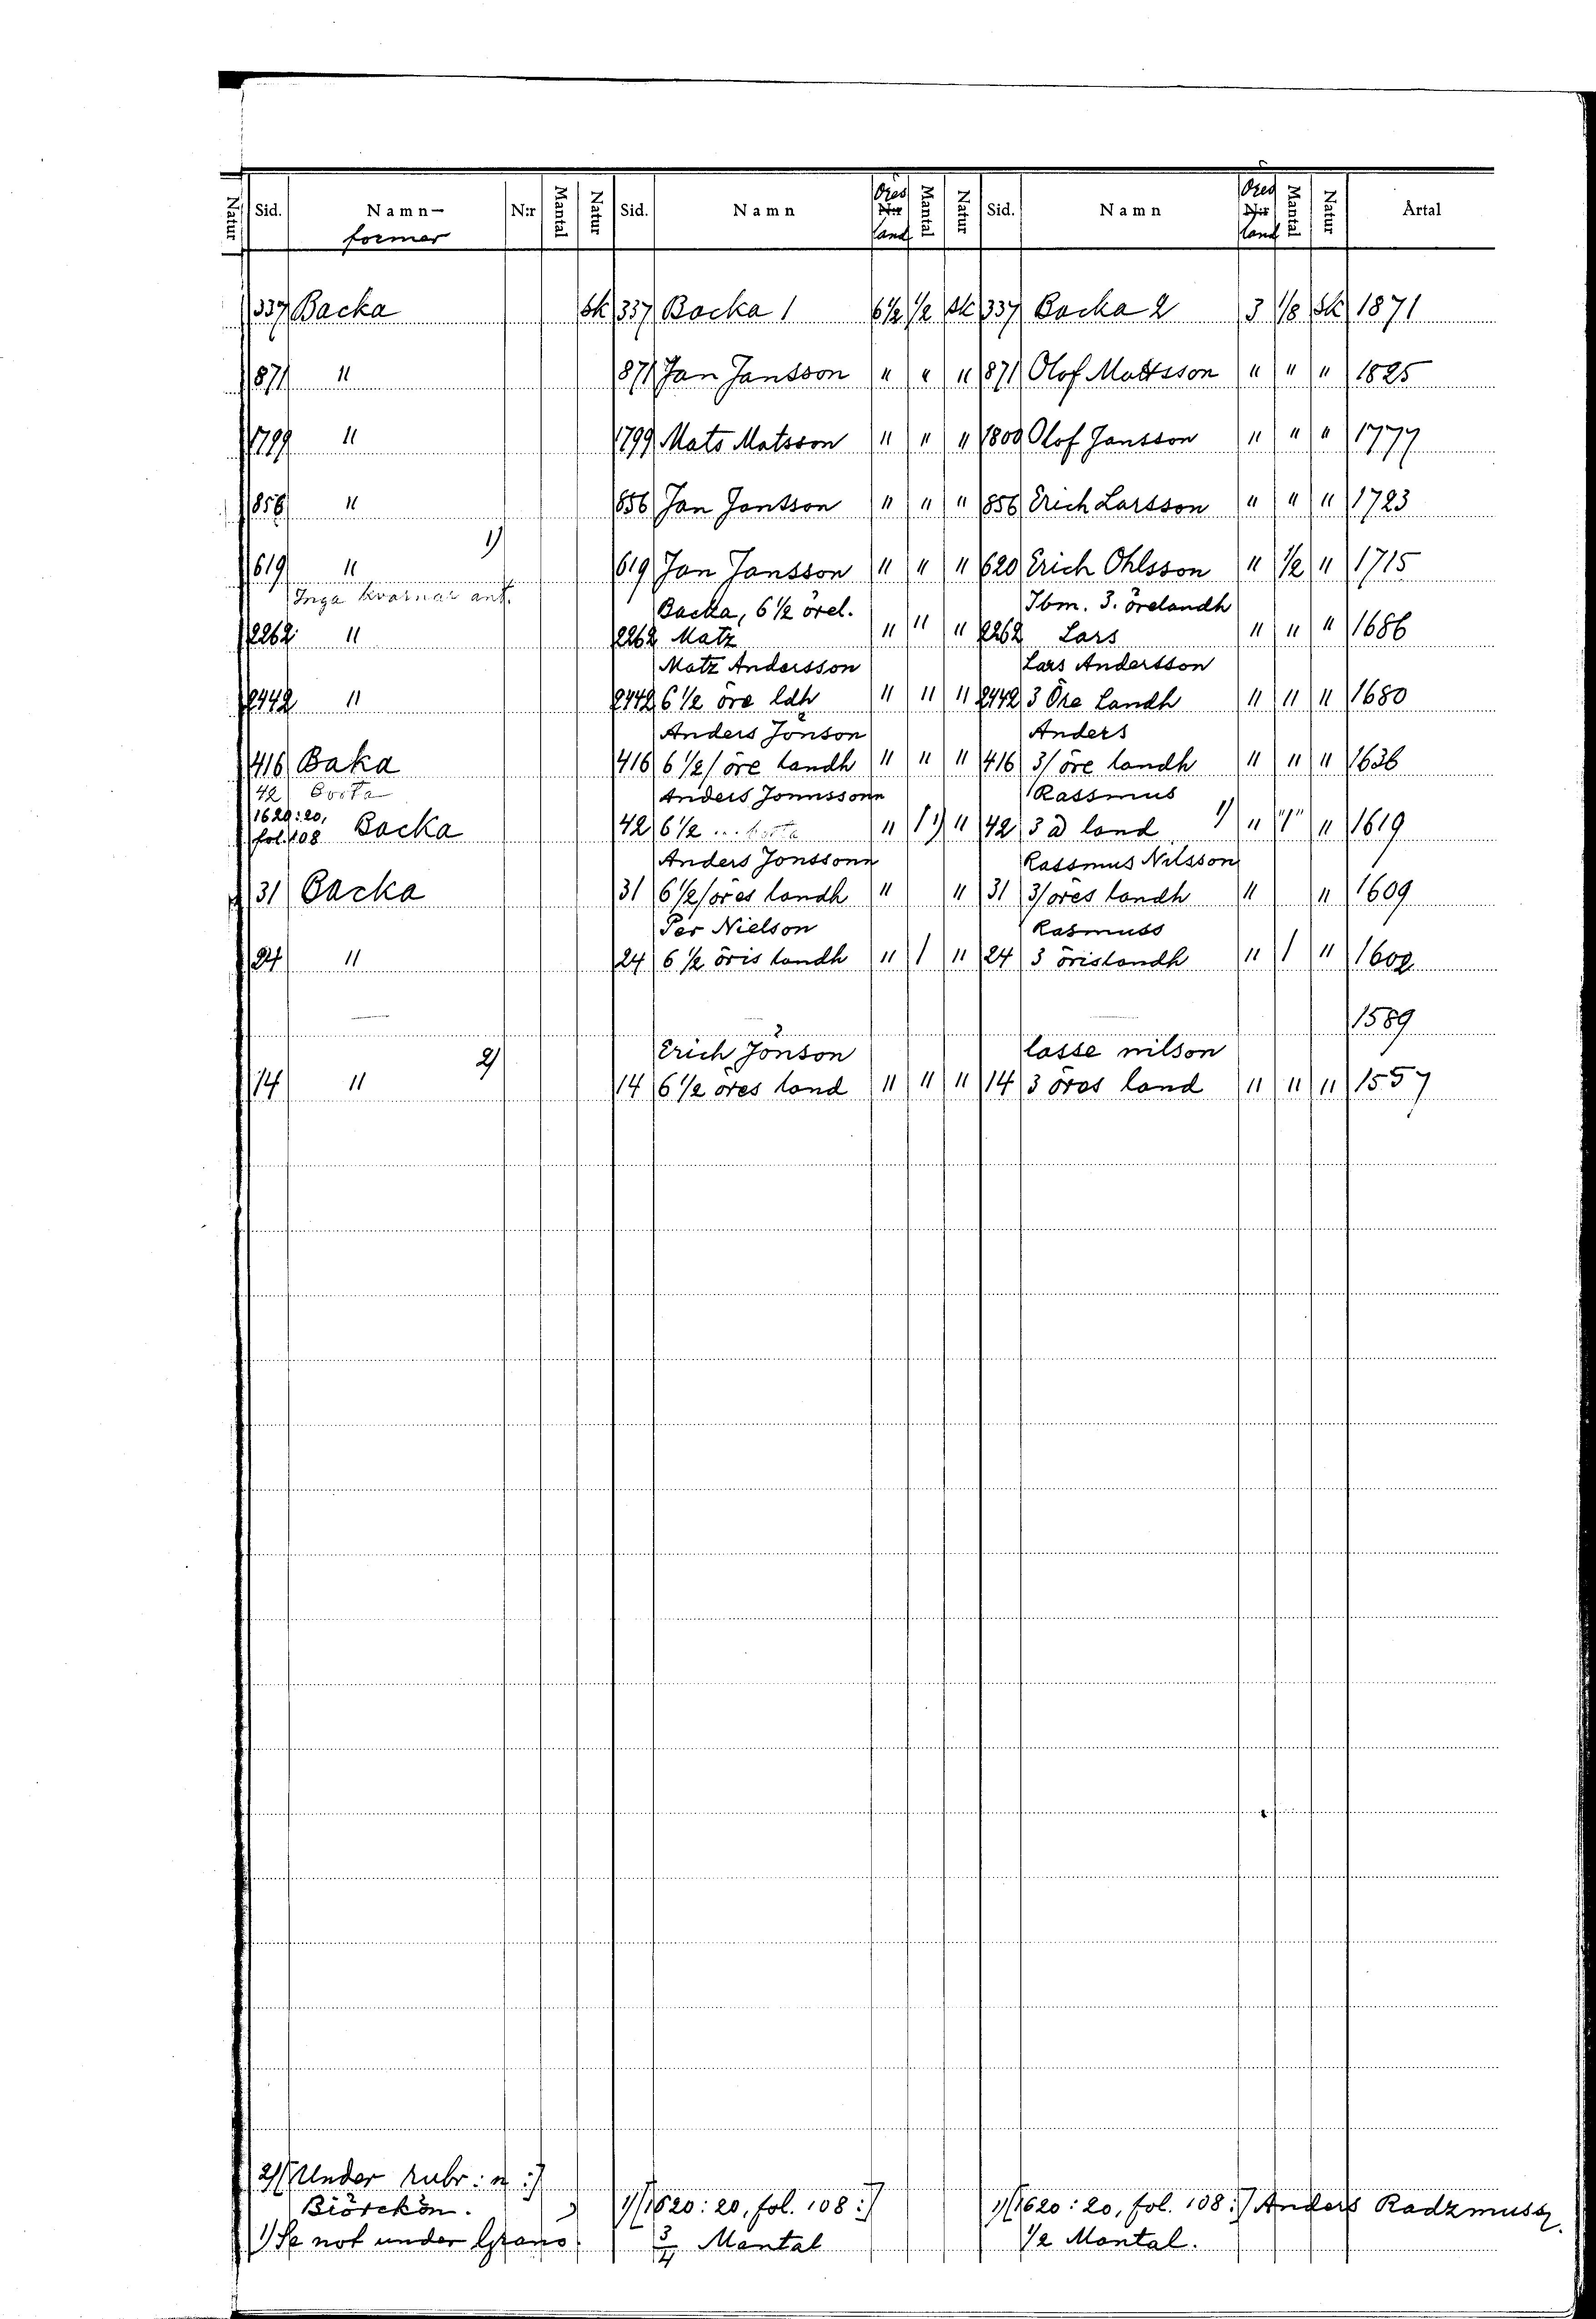 Natur Sid. Namn-former N:r Mantal Natur Sid. Namn Öres N:r land Mantal Natur Sid. Namn Öres N:r land Mantal Natur Årtal
337 Backa Sk 337 Backa 1 6½ ½ Sk 337 Backa 2 3 1/8 Sk 1871
871 " 871 Jan Jansson " " " 871 Olof Mattsson " " " 1825
1799 " 1799 Mats Matsson " " " 1800 Olof Jansson " " " 1777
856 " 856 Jan Jansson " " " 856 Erich Larsson " " " 1723
619 " 1) 619 Jan Jansson " " " 620 Erich Ohlsson " ½ " 1715
Inga kvarnar ant. Backa, 6½ örel. Ibm. 3. örelandh
2262 " 2262 Matz " " " 2262 Lars " " " 1686
Matz Andersson Lars Andersson
2442 " 2442 6½ öre ldh " " " 2442 3 Öre Landh " " " 1680
Anders Jönson Anders
416 Baka 416 6½/ öre landh " " " 416 3/ öre landh " " " 1636
42 Anders Jonnssonn Rassmus
1620:20, fol. 108 Backa 42 6½ ... " 1) " 42 3 land 1) " " " 1619
Anders Jonssonn Rassmus Nilsson
31 Backa 31 6½/öres landh " " 31 3/öres landh " " 1609
Per Nielson Rasmuss
24 " 24 6½ öris landh " 1 " 24 3 örislandh " 1 " 1602
— — 1589
2) Erich Jönson lasse nilson
14 " 14 6½ öres land " " " 14 3 öres land " " " 1557
2) [Under rubr: n :]
Biörckön.
1) Se not under Granö.
1) [1620:20, fol. 108 :]
3/4 Mantal
1) [1620:20, fol. 108 :] Anders Radzmuss
½ Mantal.